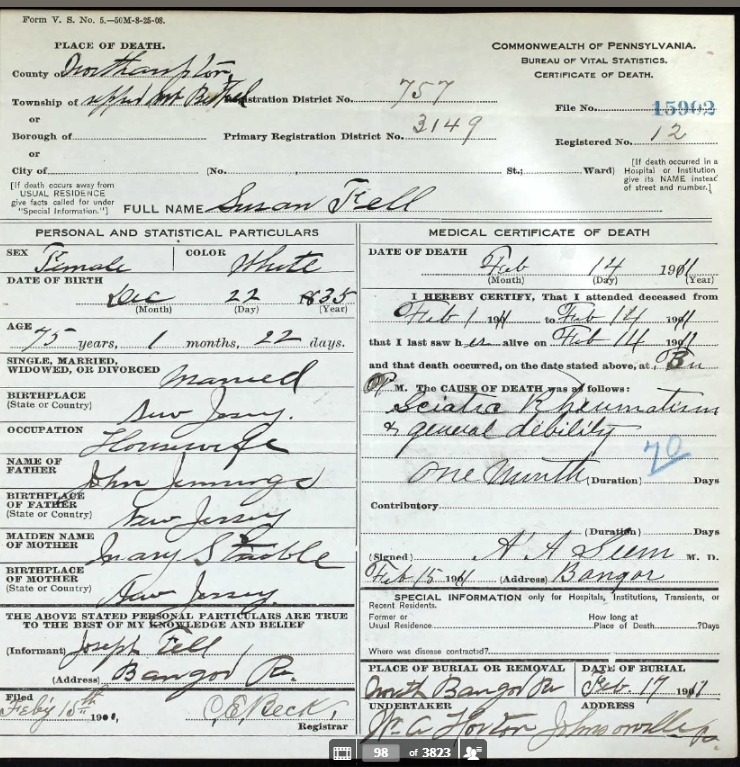 Form V. S. No. 5.—50M-8-25-08.
PLACE OF DEATH.
County of Northampton
Township of upper Mt Bethel
or
Borough of
or
City of
[If death occurs away from
USUAL RESIDENCE
give facts called for under
"Special Information."]
COMMONWEALTH OF PENNSYLVANIA.
BUREAU OF VITAL STATISTICS.
CERTIFICATE OF DEATH.
Registration District No. 757
File No. 15902
Primary Registration District No. 3149
Registered No. 12
(No. , St.; Ward)
[If death occurred in a
Hospital or Institution
give its NAME instead
of street and number.]
FULL NAME Susan Fell
PERSONAL AND STATISTICAL PARTICULARS
SEX Female
COLOR White
DATE OF BIRTH
Dec 22 1835
(Month) (Day) (Year)
AGE
75 years, 1 months, 22 days.
SINGLE, MARRIED,
WIDOWED, OR DIVORCED Married
BIRTHPLACE
(State or Country) New Jersey.
OCCUPATION Housewife
NAME OF
FATHER John Jennings
BIRTHPLACE
OF FATHER
(State or Country) New Jersey
MAIDEN NAME
OF MOTHER Mary
BIRTHPLACE
OF MOTHER
(State or Country) New Jersey.
THE ABOVE STATED PERSONAL PARTICULARS ARE TRUE
TO THE BEST OF MY KNOWLEDGE AND BELIEF
(Informant) Joseph Fell
(Address) Bangor Pa.
Filed
Feby 15th 190
C. E. Beck
Registrar
MEDICAL CERTIFICATE OF DEATH
DATE OF DEATH
Feb 14 1911
(Month) (Day) (Year)
I HEREBY CERTIFY, That I attended deceased from
Feb 1 1911 to Feb 14 1911
that I last saw her alive on Feb 14 1911
and that death occurred, on the date stated above, at
P M. The CAUSE OF DEATH was as follows:
Sciatic Rheumatism
& general debility
70
One Month (Duration) Days
Contributory
(Duration) Days
(Signed) A A Seem M. D.
Feb 15 1911 (Address) Bangor
SPECIAL INFORMATION only for Hospitals, Institutions, Transients, or
Recent Residents.
Former or
Usual Residence
How long at
Place of Death ?Days
Where was disease contracted?
PLACE OF BURIAL OR REMOVAL
North Bangor Pa
DATE OF BURIAL
Feb. 17 1911
UNDERTAKER
Wm A Horton
ADDRESS
Johnsonville Pa
98 of 3823